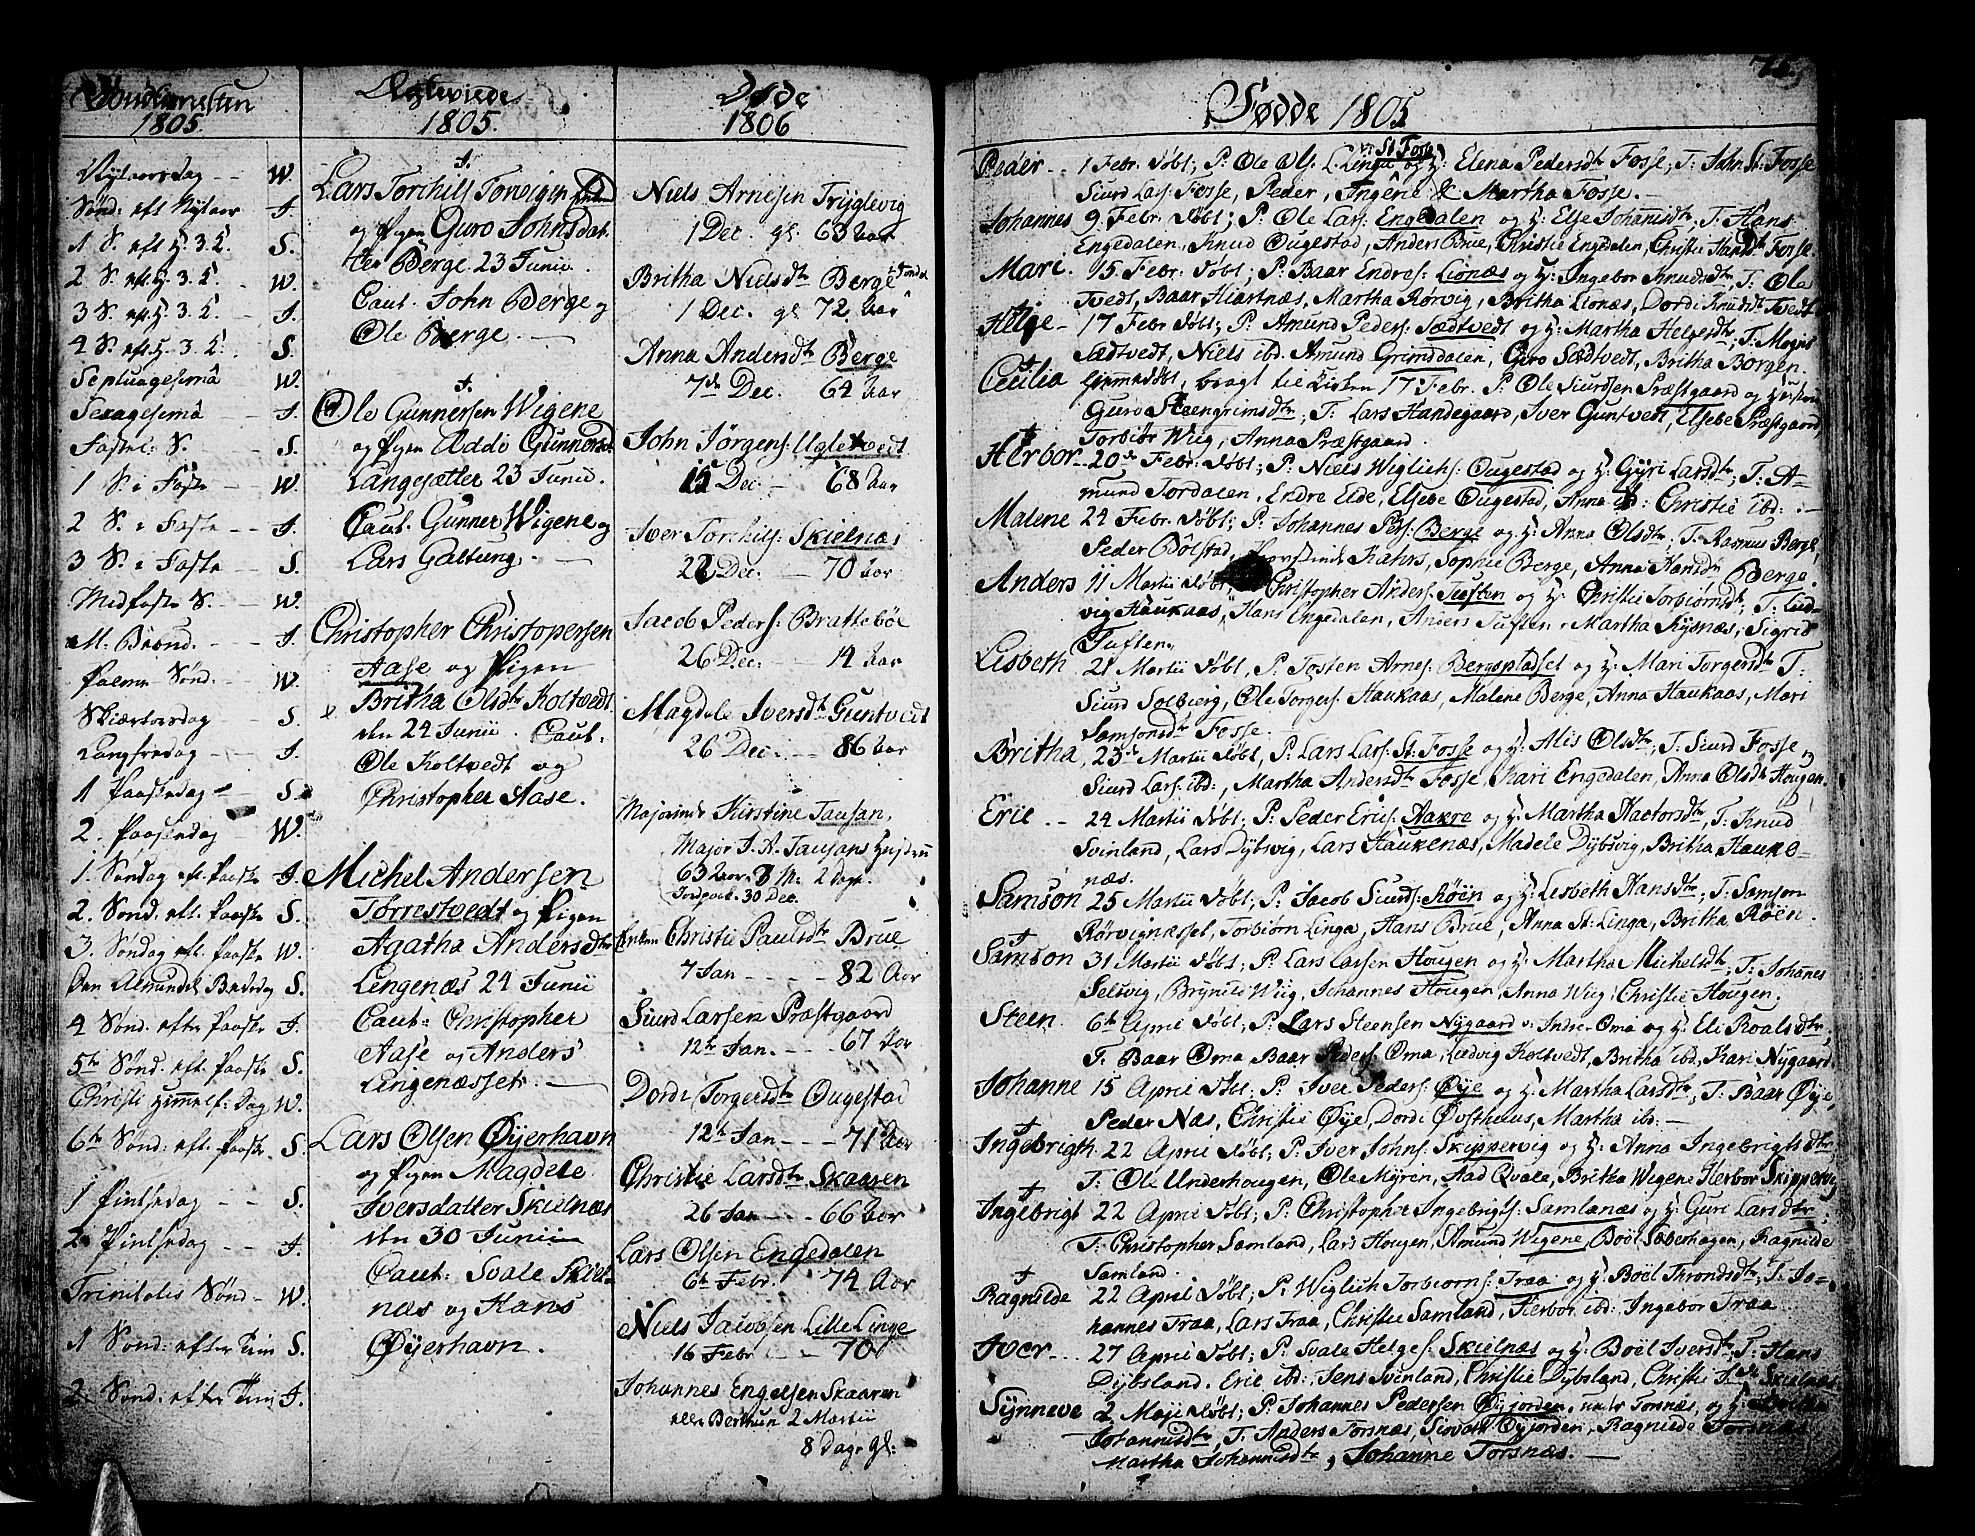 1805.
Nytaarsdag -- W.
Sønd: eft Nytaar J.
1 S. eft H. 3. K. S.
2 S. eft H. 3. K. W.
3 S. eft H. 3. K. J.
4 S. eft H. 3. K. S.
Septuagesima W.
Sexagesima -- J.
Fastel: S. S.
1 S. i Faste -- W.
2 S. i Faste -- J.
3 S. i Faste -- S.
Midfaste S. -- W.
M. Bebud. -- J.
Palme Sønd. -- W.
Skiærtorsdag -- S.
Langfredag -- J.
1 Paaskedag -- S.
2. Paaskedag -- W.
1. Søndag eft. Paaske J.
2. Sønd. eft. Paaske S.
3. Søndag eft. Paaske W.
Den Almindel. Bededag S.
4 Sønd. efter Paaske J.
5te Sønd. eft Paaske S.
Christi Himmelf: Dag W.
6te Sønd. eft. Paaske S.
1 Pintsedag -- S.
2 Pintsedag -- J.
Trinitatis Sønd - W.
1 Sønd: efter Trin S.
2. Sønd. efter Trin J.
Egteviede
1805.
Lars Torchills Torvigen
og Pigen Guro Johnsdat
ter Berge. 23 Junii.
Caut. John Berge og
Ole Berge. —
Ole Gunnersen Wigene
og Pigen Addi Gunnersd.
Langesætter 23 Junii.
Caut. Gunner Wigene og
Lars Galtung. —
Christopher Christopersen
Aase og Pigen
Britha Olsdtr Koltvedt
den 24 Junii. Caut.
Ole Koltvedt og
Christopher Aase.
Michel Andersen
Torrestvedt og Pigen
Agatha Andersdtr
Lingenæs 24 Junii
Caut: Christopher
Aase og Anders
Lingenæsset. —
Lars Olsen Øyerhavn
og Pigen Magdele
Iversdatter Skielnæs
den 30 Junii
Caut: Svale Skiel-
næs og Hans
Øyerhavn.
Døde
1806
Niels Arnesen Tryglevig
1 Dec. gl. 63 Aar
Britha Nielsdtr Berge
1 Dec. gl 72 Aar
Anna Andersdtr Berge
7de Dec. 64 Aar
John Jörgens: Ugletvedt
15 Dec. — 68 Aar
Iver Torchills: Skielnæs
22 Dec. — 70 Aar
Jacob Peders: Brattebøe
26 Dec. -- 14 Aar
Magdele Iversdtr Guntvedt
26 Dec. -- 86 Aar
Majorinde Kirstine Tausan,
Major J. A. Tausans Hustru
63 Aar 8 M. 2 Dage.
Jordpaak. 30 Dec.
Enken Christie Paulsdtr Brue
7 Jan -- 82 Aar
Siurd Larsen Præstgaard
12te Jan. -- 67 Aar
Dordi Torgersdtr Ougestad
12te Jan -- 71 Aar
Christie Larsdtr Skaaren
26 Jan -- 66 Aar
Lars Olsen Engedalen
6te Febr. 74 Aar
Niels Jacobsen Lille Linge
16 Febr. -- 70
Johannes Engelsen Skaaren
2 Martii
8 Dage gl:
75.
Fødde 1805
St. Fosse
Peder .. 1 Febr. døbt; P: Ole Ols: L. Linge og H: Elena Pedersdtr Fosse, T: John St: Fosse
Siurd Lars: Fosse, Peder, Ingerie & Martha Fosse. —
Johannes 9. Febr. døbt; P: Ole Lars: Engedalen og H: Else Johannisdtr; T: Hans
Engedalen, Knud Ougestad, Anders Brue, Christie Engdalen, Christie Hansdtr Fosse.
Mari. 15 Febr. døbt; P: Baar Endres: Lionæs og H: Ingebor Knudsdtr, T: Ola
Tvedt, Baar Hiartnæs, Martha Rørvig, Britha Lionæs, Dordi Knudsdtr Tvedt
Helge - 17 Febr døbt; P: Amund Peders: Sædtvedt og H: Martha Helgesdtr; T: Mogns
Sædtvedt, Niels ibd. Amund Grimdalen, Guro Sædtvedt, Britha Borgen.
Cecilia hjemmedøbt, bragt til Kirken 17 Febr. P: Ole Siurdsen Præstgaard og Hustru
Guro Steengrimsdtr; T: Lars Handegaard, Iver Guntvedt, Elsebe Præstgaard,
Torbiør Wiig, Anna Præstgaard.
Herbor - 20de Febr. døbt; P: Niels Wiglichs: Ougestad og H: Gyri Larsdtr; T: A-
mund Tordalen, Endre Elde, Elsebe Ougestad, Anna ibd: Christie ibd: —
Malene 24 Febr. døbt; P: Johannes Pers: Berge og H: Anna Olsdtr T: Rasmus Berge,
Peder Bölstad, Rahrs, Sophie Berge, Anna Hansdtr Berge.
Anders 11 Martii døbt, Christopher Anders: Tuften og H: Christie Torbiørnsdtr; T: Lud-
vig Haukaas, Hans Engedalen, Anders Tuften, Martha Rysnæs, Sigrid
Tuften.
Lisbeth 21 Martii døbt, P: Tosten Arnes: Bergspladset og H: Mari Torgersdtr T:
Siurd Solberg, Ole Torgers: Haukaas, Malene Berge, Anna Haukaas, Mari
Samsonsdtr Fosse.
Britha, 23de Martii døbt, P: Lars Lars: St: Fosse og H: Alis Olsdtr; T: Siurd Fosse,
Siurd Lars: ibd:, Martha Andersdtr Fosse, Kari Engedalen, Anna Olsdtr Hougen.
Eric .. 24 Martii døbt; P: Peder Erics: Aakre og H: Martha Hactorsdtr, T: Knud
Svinland, Lars Dybsvig, Lars Haukenæs, Madele Dybsvig, Britha Hauke-
næs.
Samson 25 Martii døbt; P: Jacob Siurds: Røen og H: Lisbeth Hansdtr; T: Samson
Rørvignæsset, Torbiørn Linga, Hans Brue, Anna St: Linga, Britha Røen.
Samson 31 Martii døbt; P: Lars Larsen Hougen og H: Martha Michelsdtr; T: Johannes
Selsvig, Brynild Wiig, Johannes Hougen, Anna Wiig, Christie Hougen.
Steen. 6te April døbt; P: Lars Steensen Nygaard v: Indre-Oma og H: Eli Roalsdtr,
T: Baar Oma Baar Peders: Oma, Ludvig Koltvedt, Britha ibd. Kari Nygaard.
Johanne 15 April døbt; P: Iver Peders: Øye og H: Martha Larsdtr, T: Baar Øye,
Peder Næs, Christie Øye, Dordi Øvsthuus, Martha ibd: —
Ingebrigth 22 April døbt; P: Iver Johns: Skippervig og H: Anna Ingebrigtsdtr
T: Ole Underhougen, Ole Myren, Aad Qvale, Britha Wigene Herbor Skippervig
Ingebrigt 22 April døbt; P: Christopher Ingebrigts: Samlanæs og H: Guri Larsdtr;
T: Christopher Samland, Lars Hougen, Amund Wigene, Boel Sæberhagen, Ragnilde
Samland.
Ragnilde 22 April døbt; P: Wiglich Torbiorns: Traa og H: Boel Throndsdtr; T: Jo-
hannes Traa, Lars Traa, Christie Samland, Herbor ibd: Ingebor Traa
Iver .. 27 April døbt; P: Svale Helges: Skielnæs og H: Boel Iversdtr; T: Hans
Dybsland. Eric ibd: Jens Svinland, Christie Dybsland, Christie Skielnæs.
Synneve 2 Maje døbt; P: Johannes Pedersen Øyjorden under Torsnæs, og H:
Johannisdtr, T: Anders Torsnæs, Siovat Øyjorden, Ragnilde Torsnæs
Martha Johannisdtr, Johanne Torsnæs. —